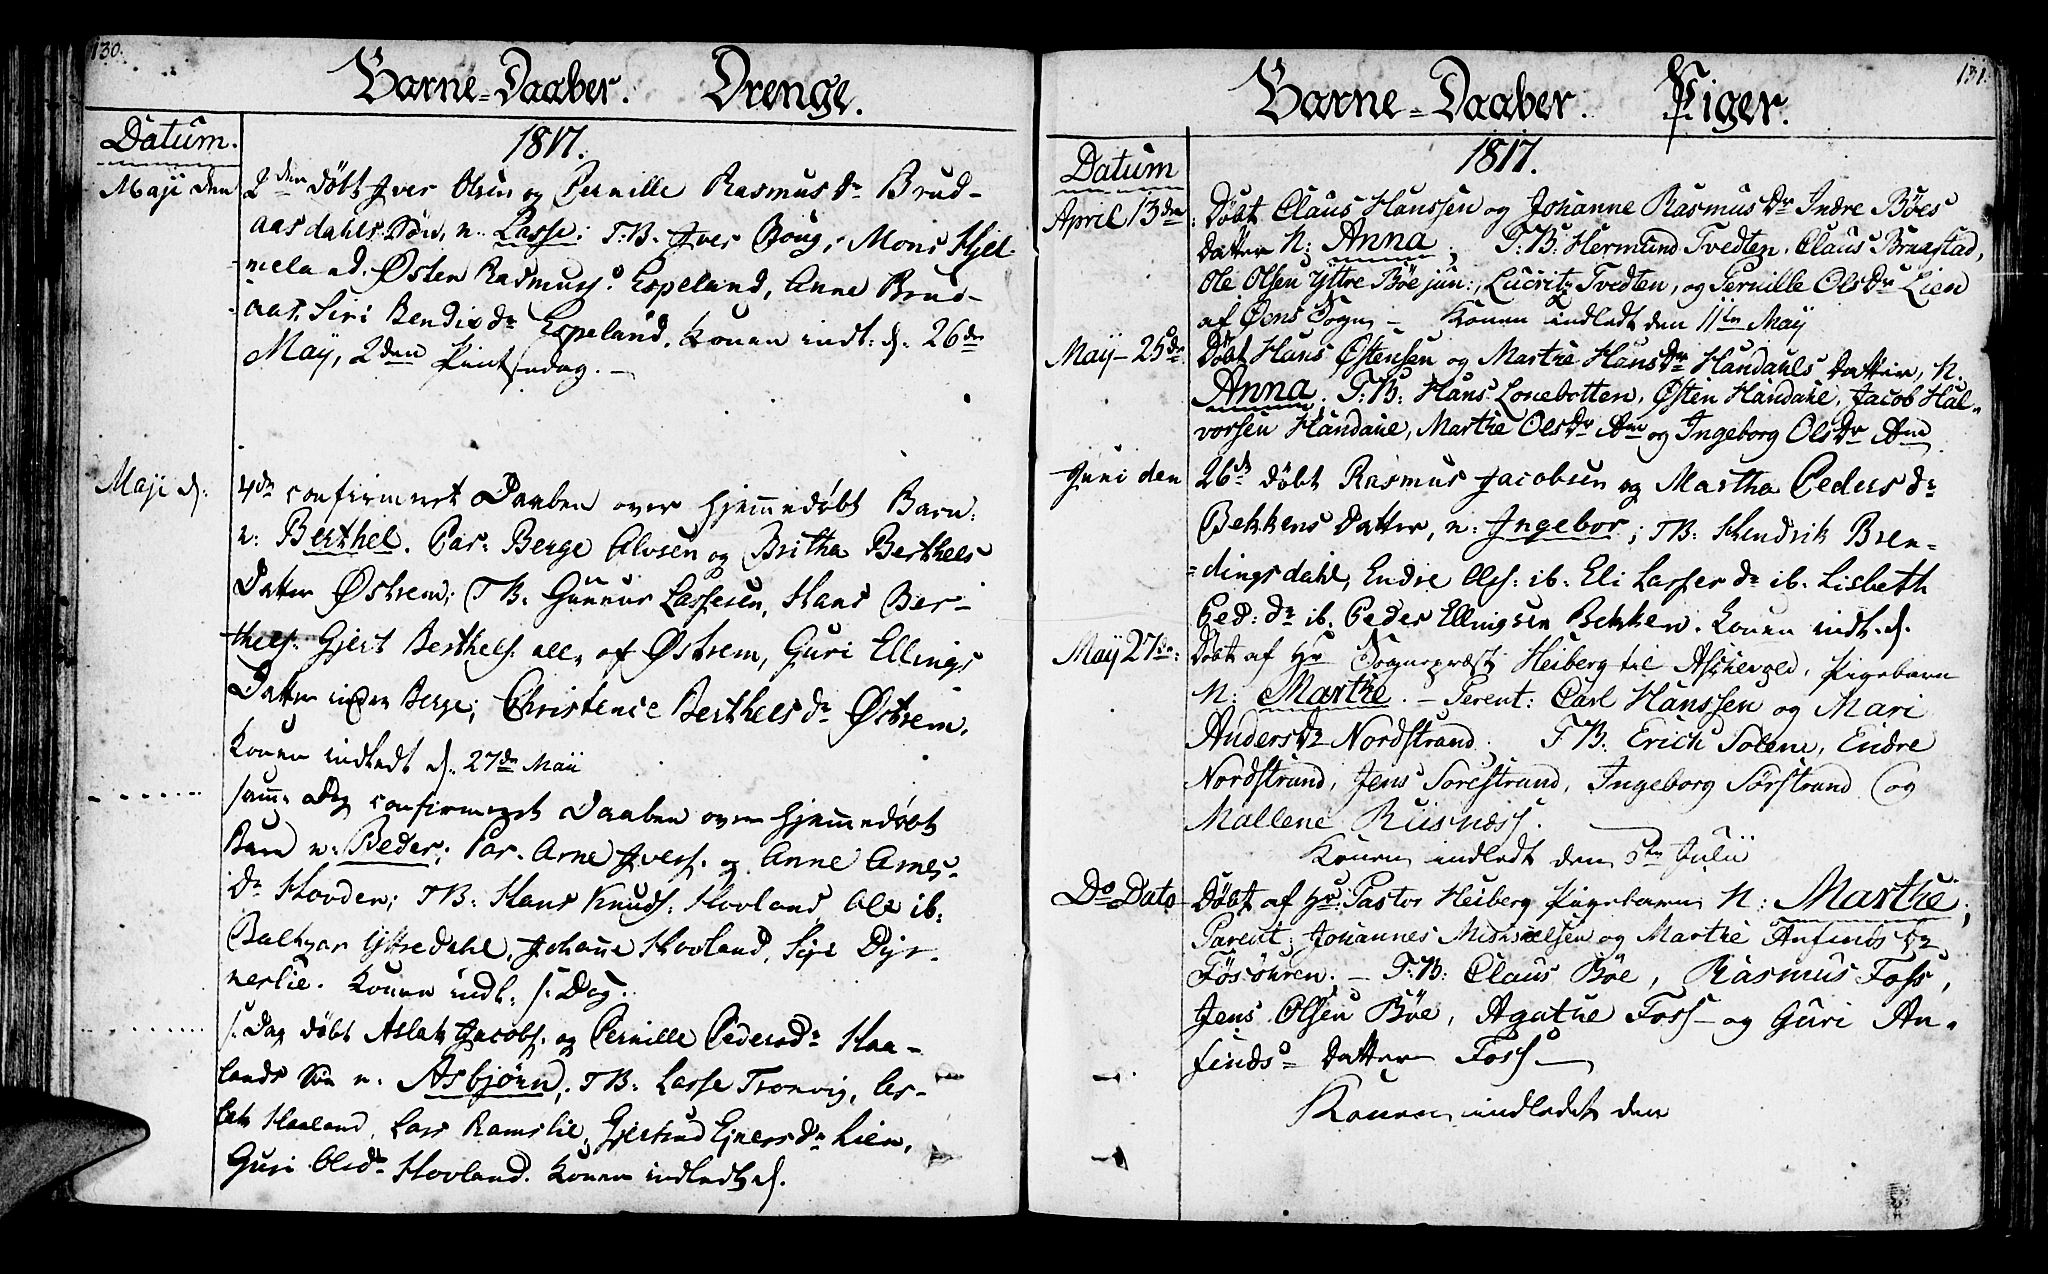 130.
Barne-Daaber. Drenge.
Datum. 1817.
Maji den 2den døbt Iver Olsen og Pernille Rasmusdr Brud-
aasdahls Søn, n. Lasse; T.B. Iver Böug, Mons Hjel-
meland, Østen Rasmuss. Espeland, Anne Brud-
aas, Siri Bendixdr Espeland. Konen indl: d. 26de
Maÿ, 2den Pintsedag. –
Maji d: 4de confirmeret Daaben over hjemmedøbt Barn:
n: Berthel. Par: Berge Alvsen og Britha Berthels
Datter Østrem; T.B. Gunnar Lassesen, Hans Ber-
thels: Gjert Berthels: alle af Østrem, Guri Ellings
Datter inden Berge; Christence Berthelsdr Østrem.
Konen indledt d. 27de Maii
samme Dag confirmeret Daaben over hjemmedøbt
Barn n: Peder; Par. Arne Ivers. og Anne Arnes-
dr Hovden; T.B: Hans Knuds: Hovland, Ole ib:
Balthzar Yttredahl, Johanne Hovland, Siri Dyr-
nerlie. Konen indl. s. Dag.
s. Dag døbt Aslak Jacobs. og Pernille Pedersdr Haa-
lands Søn n: Asbjørn; T.B: Lasse Tronvig, As-
lak Haaland, Lars Ramslie, Gjertrud Ejnersdr Lien,
Guri Olsdr Hovland. Konen indledt d.
131.
Barne-Daaber. Piger.
Datum 1817.
April 13den: Døbt Claus Hanssen og Johanne Rasmusdr Indre Böes
Datter N: Anna; T:B: Hermund Tvedten, Claus Braastad,
Ole Olsen Yttre Böe jun:, Lucritz Tvedten, og Pernille Olsdr Lien
af Øens Sogn – Konen indledt den 11te May
Maÿ – 25de: Døbt Hans Østensen og Marthe Hansdr Handahls Datter, N.
Anna. T:B: Hans Lonebotten, Østen Handahl, Jacob Hal-
vorsen Handahl, Marthe Olsdr Aae og Ingeborg Olsdr Aae
Juni den 26de døbt Rasmus Jacobsen og Martha Pedersdr
Bekkens Datter, n: Ingebor; TB: Hendrik Bren-
-dingsdahl, Endre Ols: ib. Eli Lassesdr ib. Lisbeth
Ped: dr ib. Peder Ellingsen Bekken. Konen indl. d.
Maÿ 27de: Døbt af Hr Sognepræst Heiberg til Aschevold, Pigebarn
N: Marthe. – Parent: Carl Hanssen og Mari
Andersdr Nordstrand. T.B. Erich Solene, Endre
Nordstrand, Jens Sorestrand, Ingeborg Sörstrand og
Mallene Riisnæss.
Konen indledt den 6te Julii
Do Dato Døbt af Hr: Pastor Heiberg Pigebarn N: Marthe;
Parent: Johannes Michaelsen og Marthe Anfindsdr
Fösöhren. – T:B: Claus Böe, Rasmus Foss,
Jens Olsen Böe, Agathe Foss – og Guri An-
finds- Datter Foss –
Konen indledet den